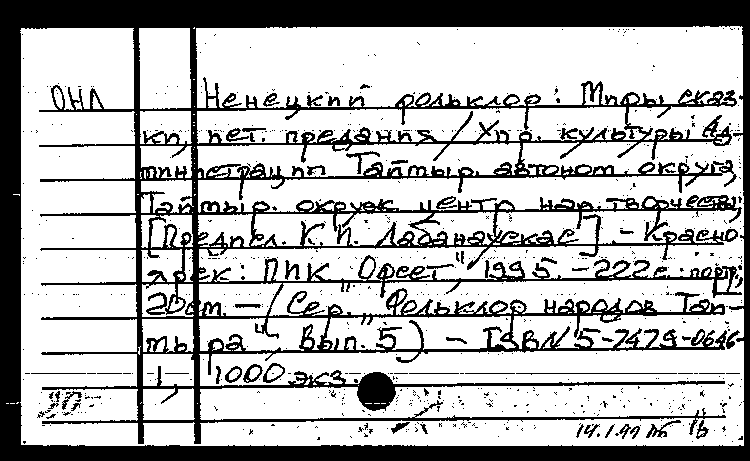 ОНЛ Ненецкий фольклор: Мифы, сказ-
ки, ист. предания / Упр. культуры Ад-
министрации Таймыр. автоном. округа,
Таймыр. окруж. центр нар. творчества;
[Предисл. К. И. Лабанаускас]. - Красно-
ярск: ПИК "Офсет", 1995. - 222 с.: портр.;
20 см. - (Сер. "Фольклор народов Тай-
мыра", Вып. 5) - ISBN 5-7479-0646-
1, 1000 экз.
90-
14.1.97